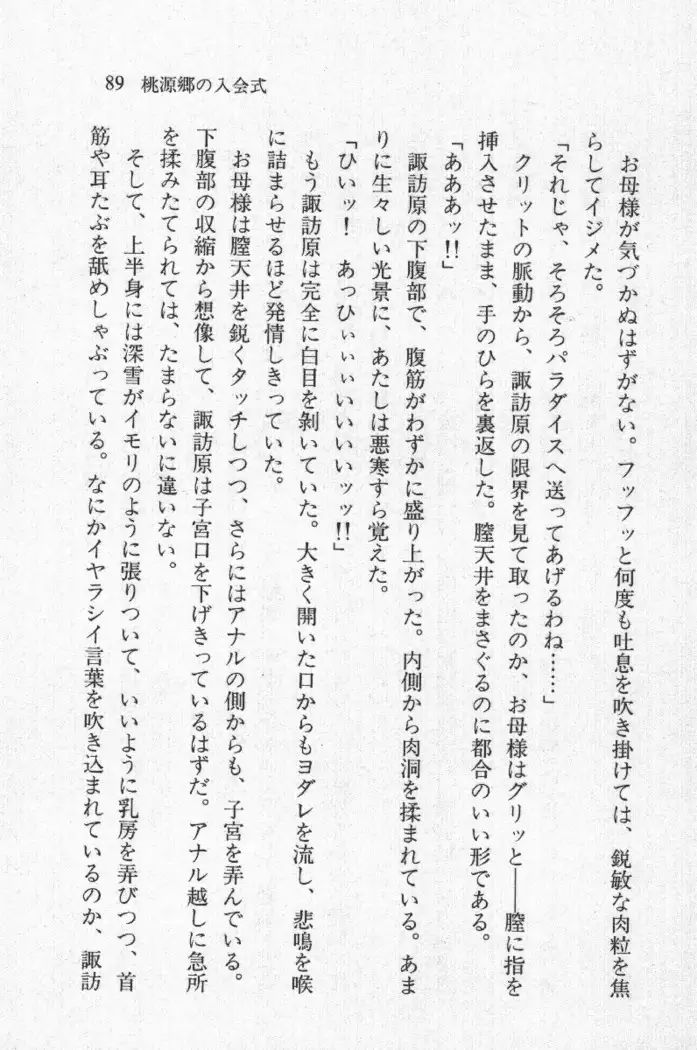 89 桃源郷の入会式
お母様が気づかぬはずがない。フッフッと何度も吐息を吹き掛けては、鋭敏な肉粒を焦
らしてイジメた。
「それじゃ、そろそろパラダイスへ送ってあげるわね……」
クリットの脈動から、諏訪原の限界を見て取ったのか、お母様はグリッと――膣に指を
挿入させたまま、手のひらを裏返した。膣天井をまさぐるのに都合のいい形である。
「あああッ!!」
諏訪原の下腹部で、腹筋がわずかに盛り上がった。内側から肉洞を揉まれている。あま
りに生々しい光景に、あたしは悪寒すら覚えた。
「ひいッ！　あっひぃぃぃいいいいッッ!!」
もう諏訪原は完全に白目を剥いていた。大きく開いた口からもヨダレを流し、悲鳴を喉
に詰まらせるほど発情しきっていた。
お母様は膣天井を鋭くタッチしつつ、さらにはアナルの側からも、子宮を弄んでいる。
下腹部の収縮から想像して、諏訪原は子宮口を下げきっているはずだ。アナル越しに急所
を揉みたてられては、たまらないに違いない。
そして、上半身には深雪がイモリのように張りついて、いいように乳房を弄びつつ、首
筋や耳たぶを舐めしゃぶっている。なにかイヤラシイ言葉を吹き込まれているのか、諏訪